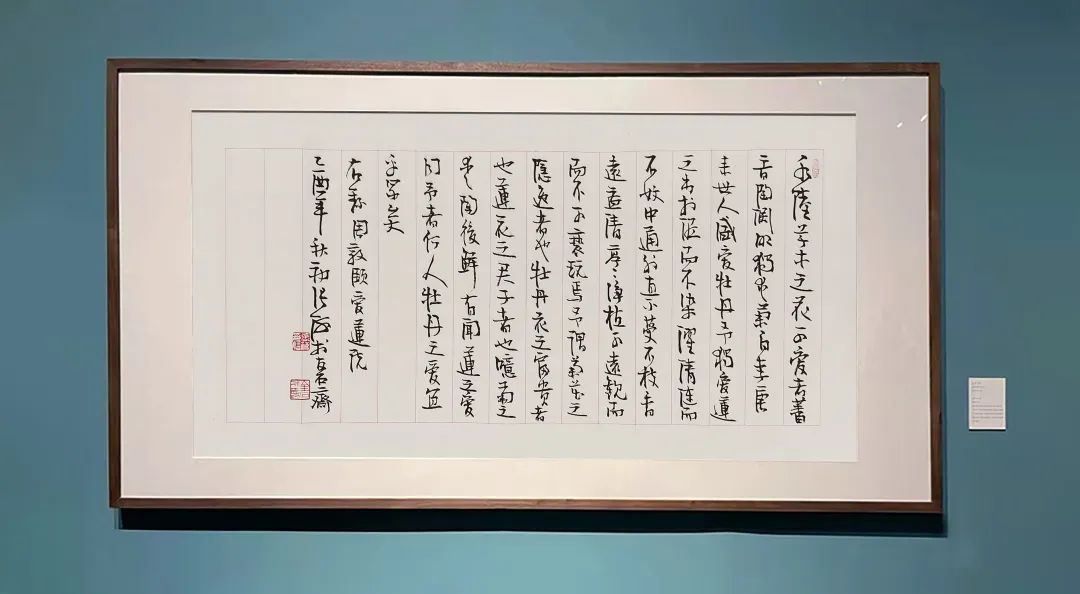 水陸草木之花可愛者蕃
晉陶淵明獨愛菊自李唐
来世人盛愛牡丹予獨愛蓮
之出於淤而不染濯清漣而
不妖中通外直不蔓不枝香
遠益清亭々淨植可遠觀而
而不可褻玩焉予謂菊花之
隱逸者也牡丹花之富貴者
也蓮花之君子者也噫菊之
愛陶後鮮有聞蓮之愛
同予者何人牡丹之愛宜
乎眾矣
右録周敦頤愛蓮説
乙酉年秋初张於齋